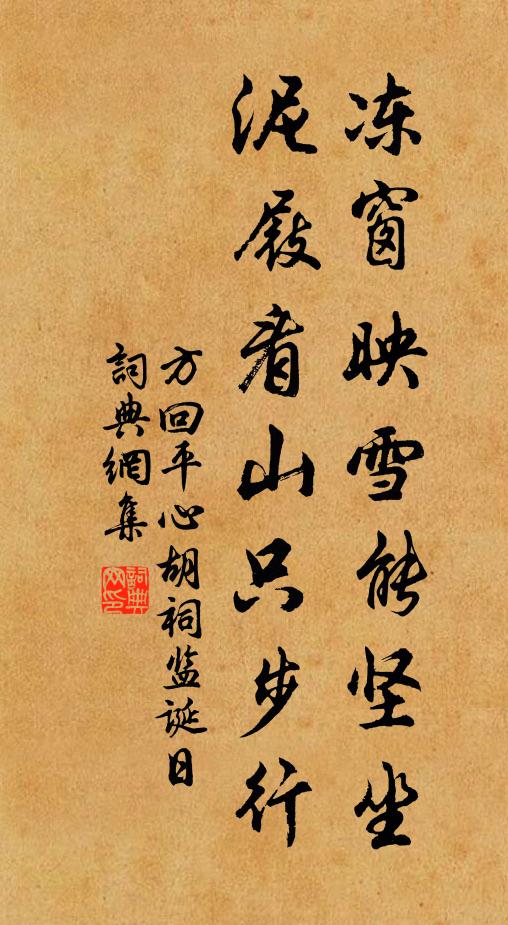 冻窗映雪能坚坐
泥屐看山只步行
方回平心胡祠监诞日
詞典網集
詞典网印